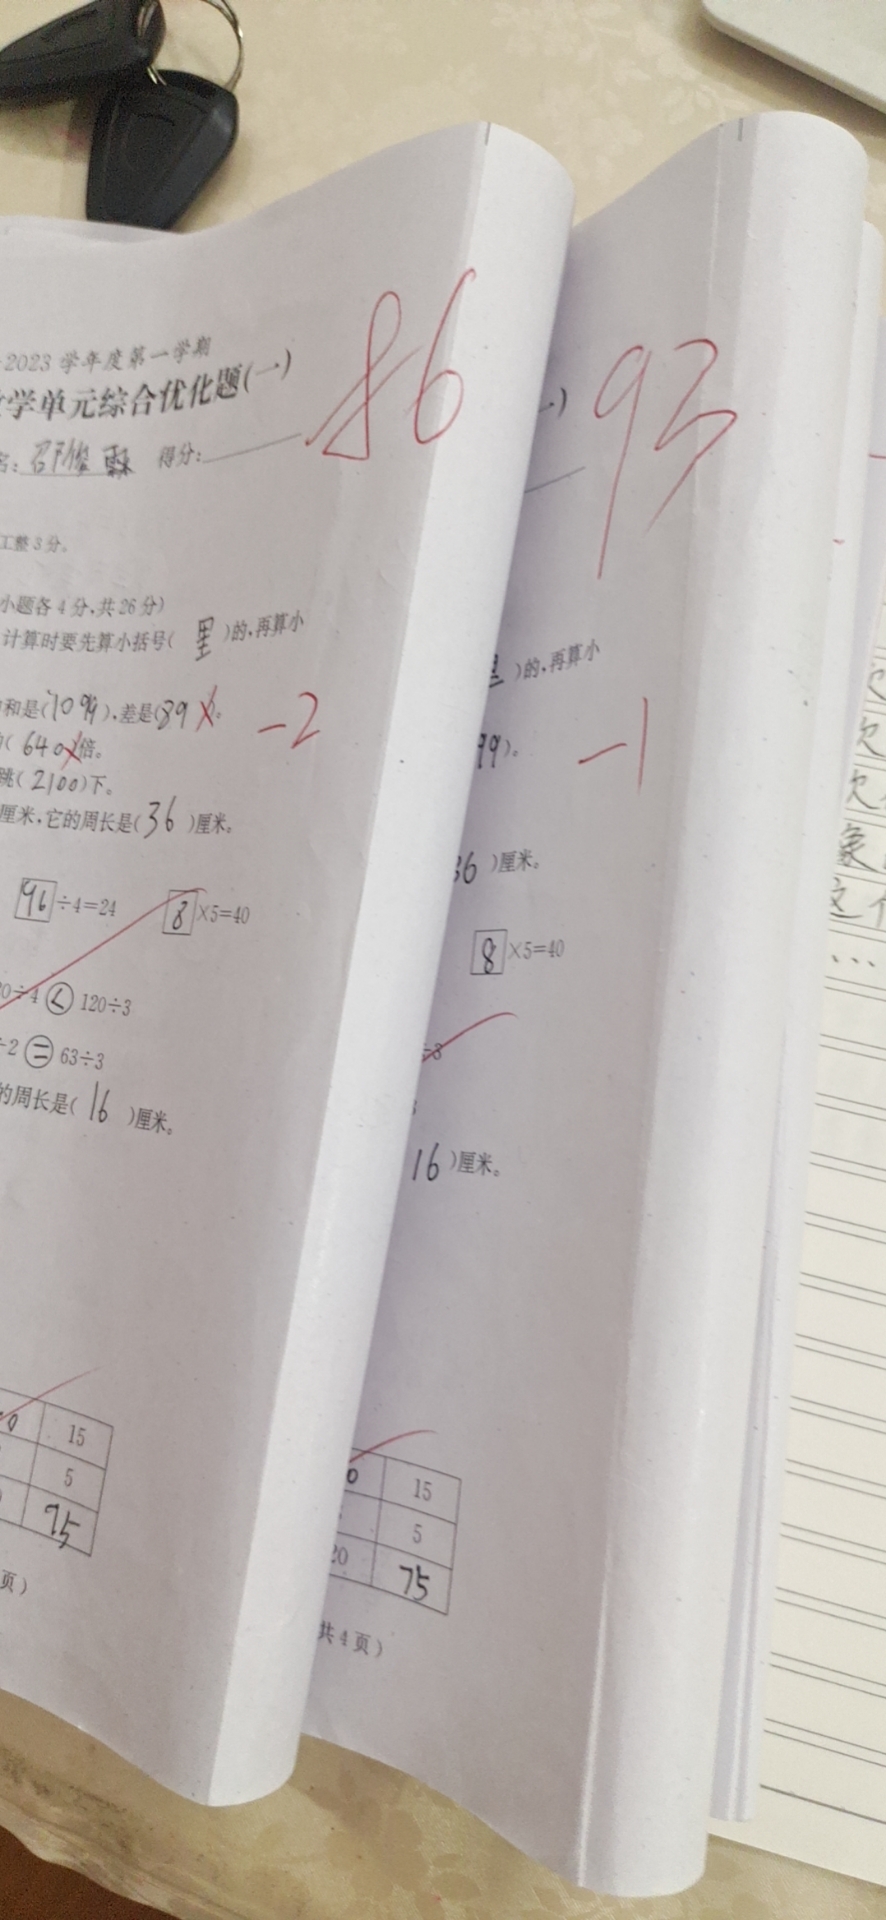 2023 学年度第一学期
学单元综合优化题(一)
得分:
86
工整3分。
小题各4分,共26分)
计算时要先算小括号( 里 )的,再算小
和是(1099),差是(89
-2
(640)倍。
跳(2100)下。
厘米,它的周长是(36 )厘米。
96÷4=24 8×5=40
0÷4<120÷3
÷2=63÷3
的周长是( 16 )厘米。
0 15
5
75
页)
一)
93
)的,再算小
99)。
-1
36 )厘米。
8×5=40
÷3
16)厘米。
0 15
5
20 75
共4页)
次
欠
欠
象
这个
...